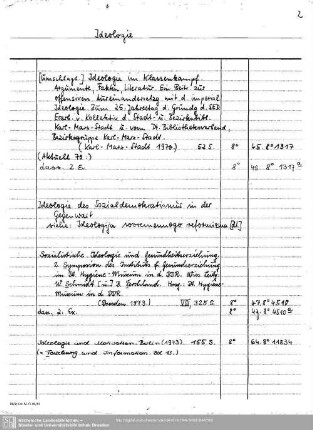 2
Ideologie
[Umschlagt.] Ideologie im Klassenkampf.
Argumente, Fakten, Literatur. Ein Beitr. zur
offensiven Auseinandersetzg mit d. imperial.
Ideologie. Zum 25. Jahrestag d. Gründg d. SED
Erarb. v. Kollektiv d. Stadt- u. Bezirksbibl.
Karl-Marx-Stadt u. vom Dt. Bibliotheksverband,
Bezirksgruppe Karl-Marx-Stadt.
(Karl-Marx-Stadt 1970.) 52 S. 8° 45. 8° 1317
(Aktuelle 70.)
dass. 2. Ex. 8° 45. 8° 1317 a
Ideologie des Sozialdemokratismus in der
Gegenwart
siehe: Ideologija sovremennogo reformizma
Sozialistische Ideologie und Gesundheitserziehung.
2. Symposion des Instituts f. Gesundheitserziehung
im Dt. Hygiene-Museum in d. DDR. Wiss. Leitg
W. Schmidt [u.] J. Ferchland. Hrsg.: Dt. Hygiene-
Museum in d. DDR.
(Dresden 1973.) VIII, 328 S. 8° 47. 8° 4510
dass. 2. Ex. 8° 47. 8° 4510 a
Ideologie und Motivation. Berlin (1973). 155 S. 8° 64. 8° 11834
(= Forschung und Information. Bd 14.)